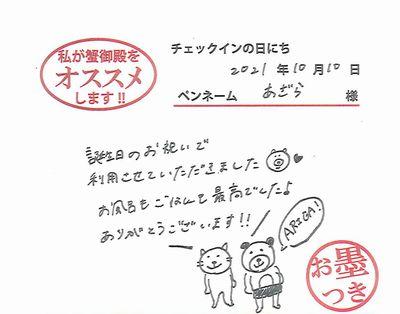 私が蟹御殿を
オススメ
します!!
チェックインの日にち
2021年10月10日
ペンネーム あざら 様
誕生日のお祝いで
利用させていただきました
お風呂もごはんも最高でしたよ
ありがとうございます!!
ARIGA!
お墨
つき